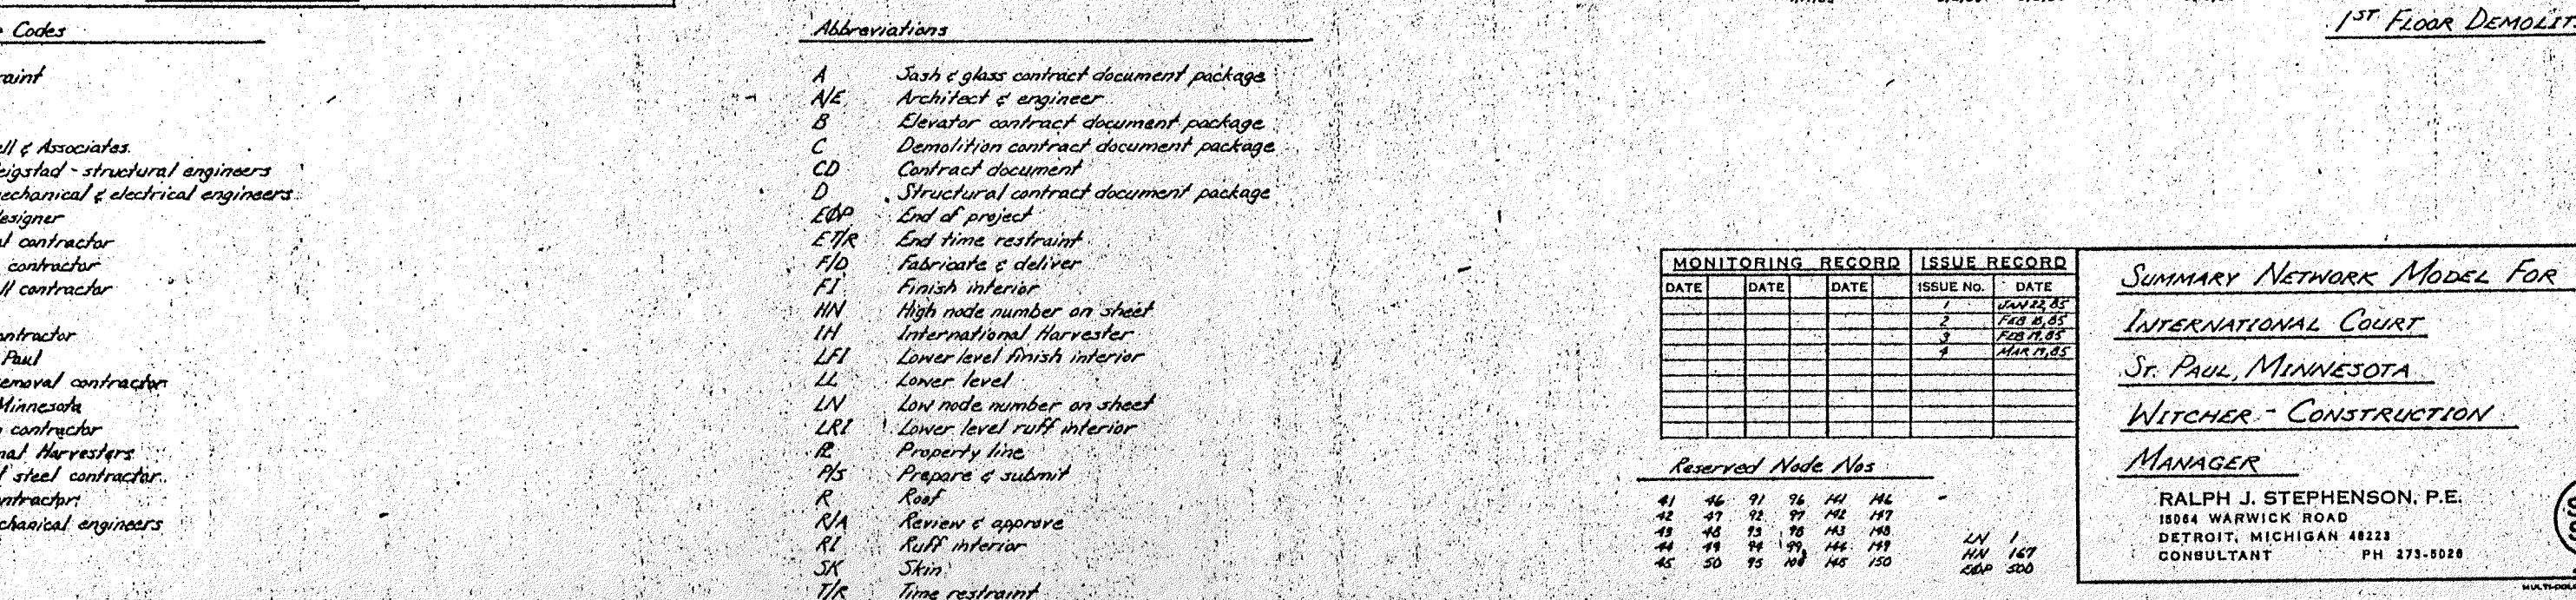 Codes
raint
ll & Associates.
eigstad - structural engineers
echanical & electrical engineers
esigner
l contractor
contractor
ll contractor
ontractor
Paul
emoval contractor
Minnesota
contractor
nal Harvesters
l steel contractor.
ontractor
chanical engineers
Abbreviations
A Sash & glass contract document package
A/E Architect & engineer
B Elevator contract document package
C Demolition contract document package
CD Contract document
D Structural contract document package
EØP End of project
ET/R End time restraint
F/D Fabricate & deliver
FI Finish interior
HN High node number on sheet
IH International Harvester
LFI Lower level finish interior
LL Lower level
LN Low node number on sheet
LRI Lower level ruff interior
PL Property line
P/S Prepare & submit
R Roof
R/A Review & approve
RI Ruff interior
SK Skin
T/R Time restraint
1ST FLOOR DEMOLIT
MONITORING RECORD ISSUE RECORD
DATE DATE DATE ISSUE No. DATE
1 JAN 22, 85
2 FEB 18, 85
3 FEB 19, 85
4 MAR 19, 85
Reserved Node Nos
41 46 91 96 141 146
42 47 92 97 142 147
43 48 93 98 143 148
44 49 94 99 144 149
45 50 95 100 145 150
LN 1
HN 167
EØP 500
SUMMARY NETWORK MODEL FOR
INTERNATIONAL COURT
ST. PAUL, MINNESOTA
WITCHER - CONSTRUCTION
MANAGER
RALPH J. STEPHENSON, P.E.
15064 WARWICK ROAD
DETROIT, MICHIGAN 48223
CONSULTANT PH 273-5026